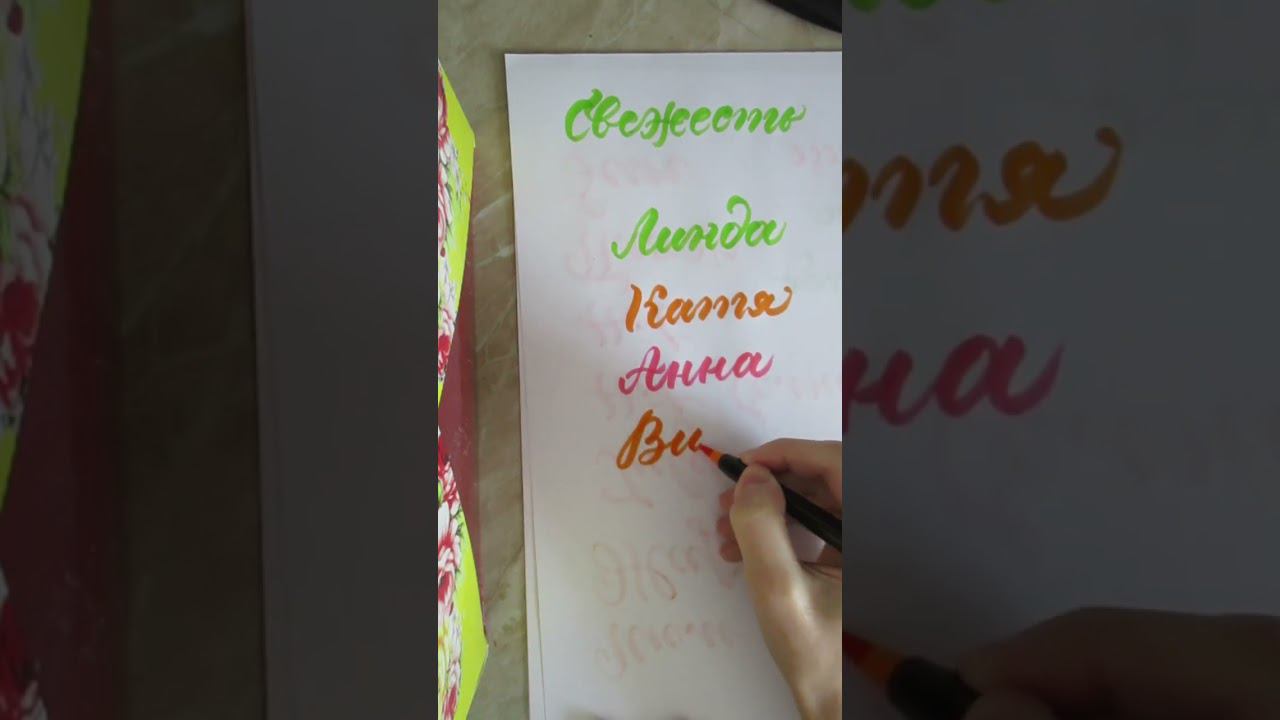 Свежесть
Линда
Катя
Анна
Ви